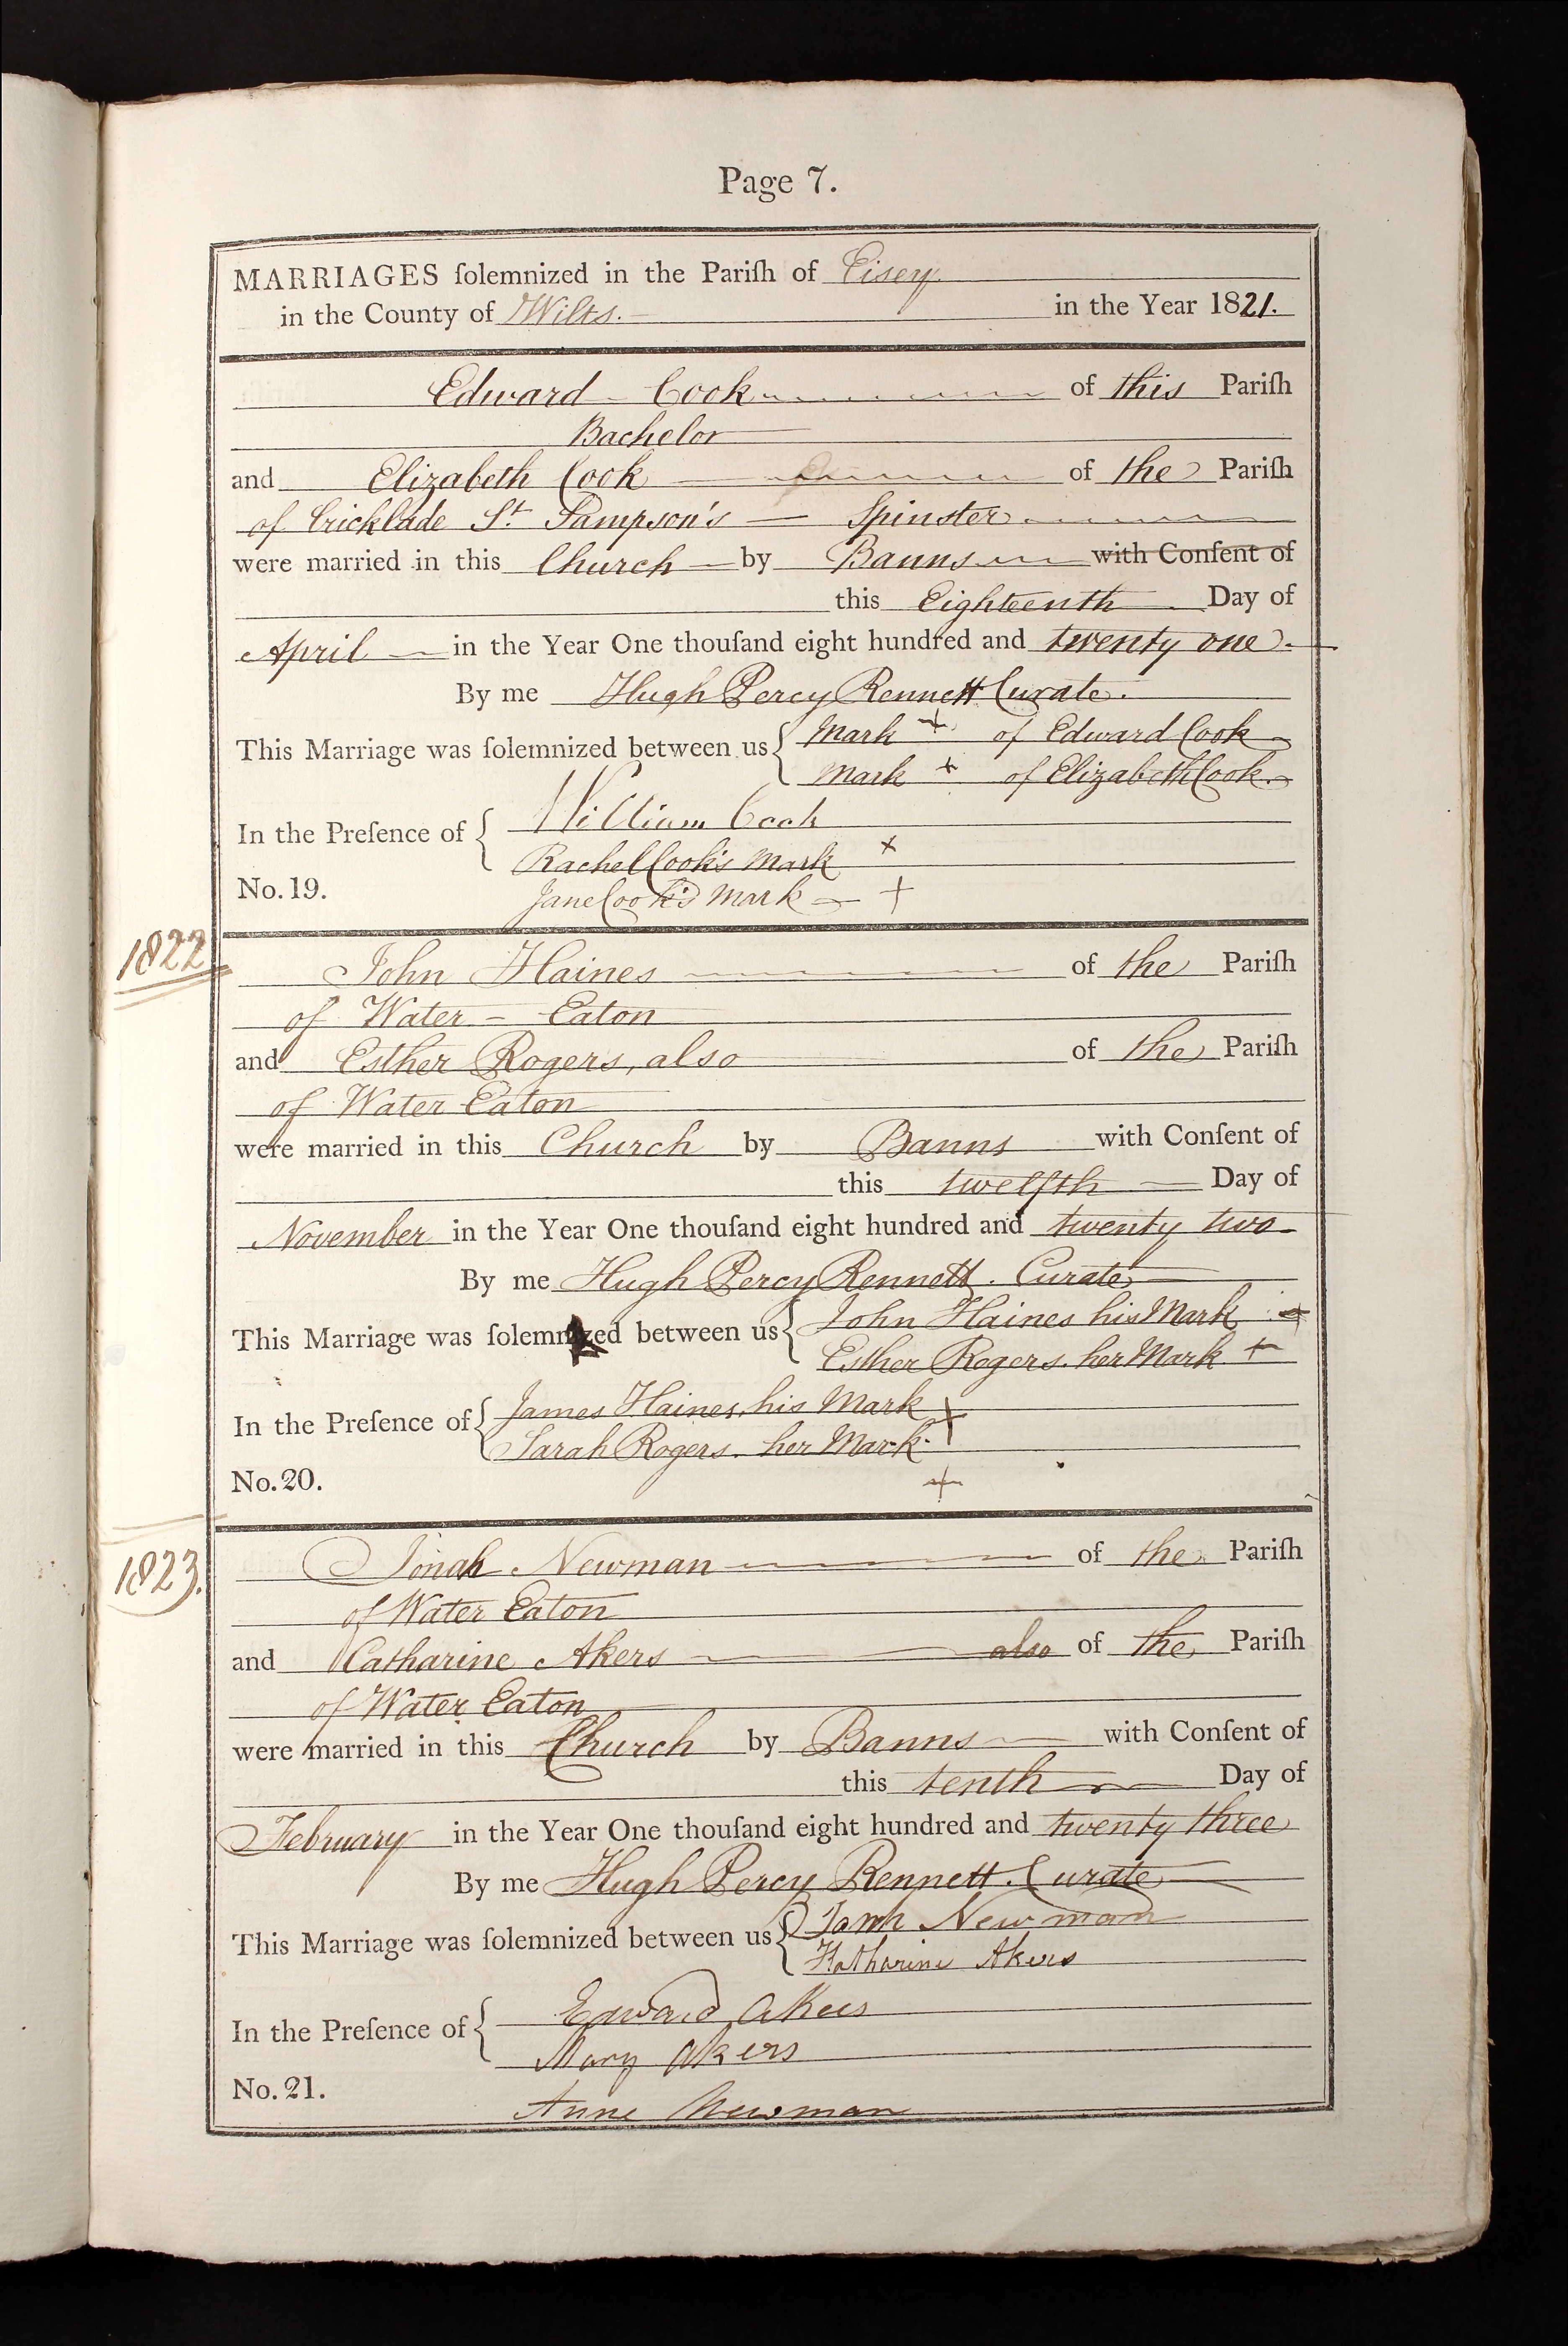 Page 7.
MARRIAGES ſolemnized in the Pariſh of Eisey
in the County of Wilts. in the Year 1821.
Edward Cook of this Pariſh
Bachelor
and Elizabeth Cook of the Pariſh
of Cricklade St. Sampson's — Spinster
were married in this Church by Banns with Conſent of
this Eighteenth Day of
April in the Year One thouſand eight hundred and twenty one.
By me Hugh Percy Rennett Curate.
This Marriage was ſolemnized between us { Mark + of Edward Cook
Mark + of Elizabeth Cook
In the Preſence of { William Cook
Rachel Cook's Mark x
No. 19. Jane Cook's Mark +
1822
John Haines of the Pariſh
of Water - Eaton
and Esther Rogers, also of the Pariſh
of Water Eaton
were married in this Church by Banns with Conſent of
this twelfth Day of
November in the Year One thouſand eight hundred and twenty two
By me Hugh Percy Rennett. Curate
This Marriage was ſolemnized between us { John Haines his Mark +
Esther Rogers. her Mark +
In the Preſence of { James Haines, his Mark +
Sarah Rogers. her Mark.
No. 20. +
1823.
Jonah Newman of the Pariſh
of Water Eaton
and Catharine Akers also of the Pariſh
of Water Eaton
were married in this Church by Banns with Conſent of
this tenth Day of
February in the Year One thouſand eight hundred and twenty three
By me Hugh Percy Rennett. Curate
This Marriage was ſolemnized between us { Newman
Katharine Akers
In the Preſence of { Edward Akers
Mary Akers
No. 21. Anne Newman